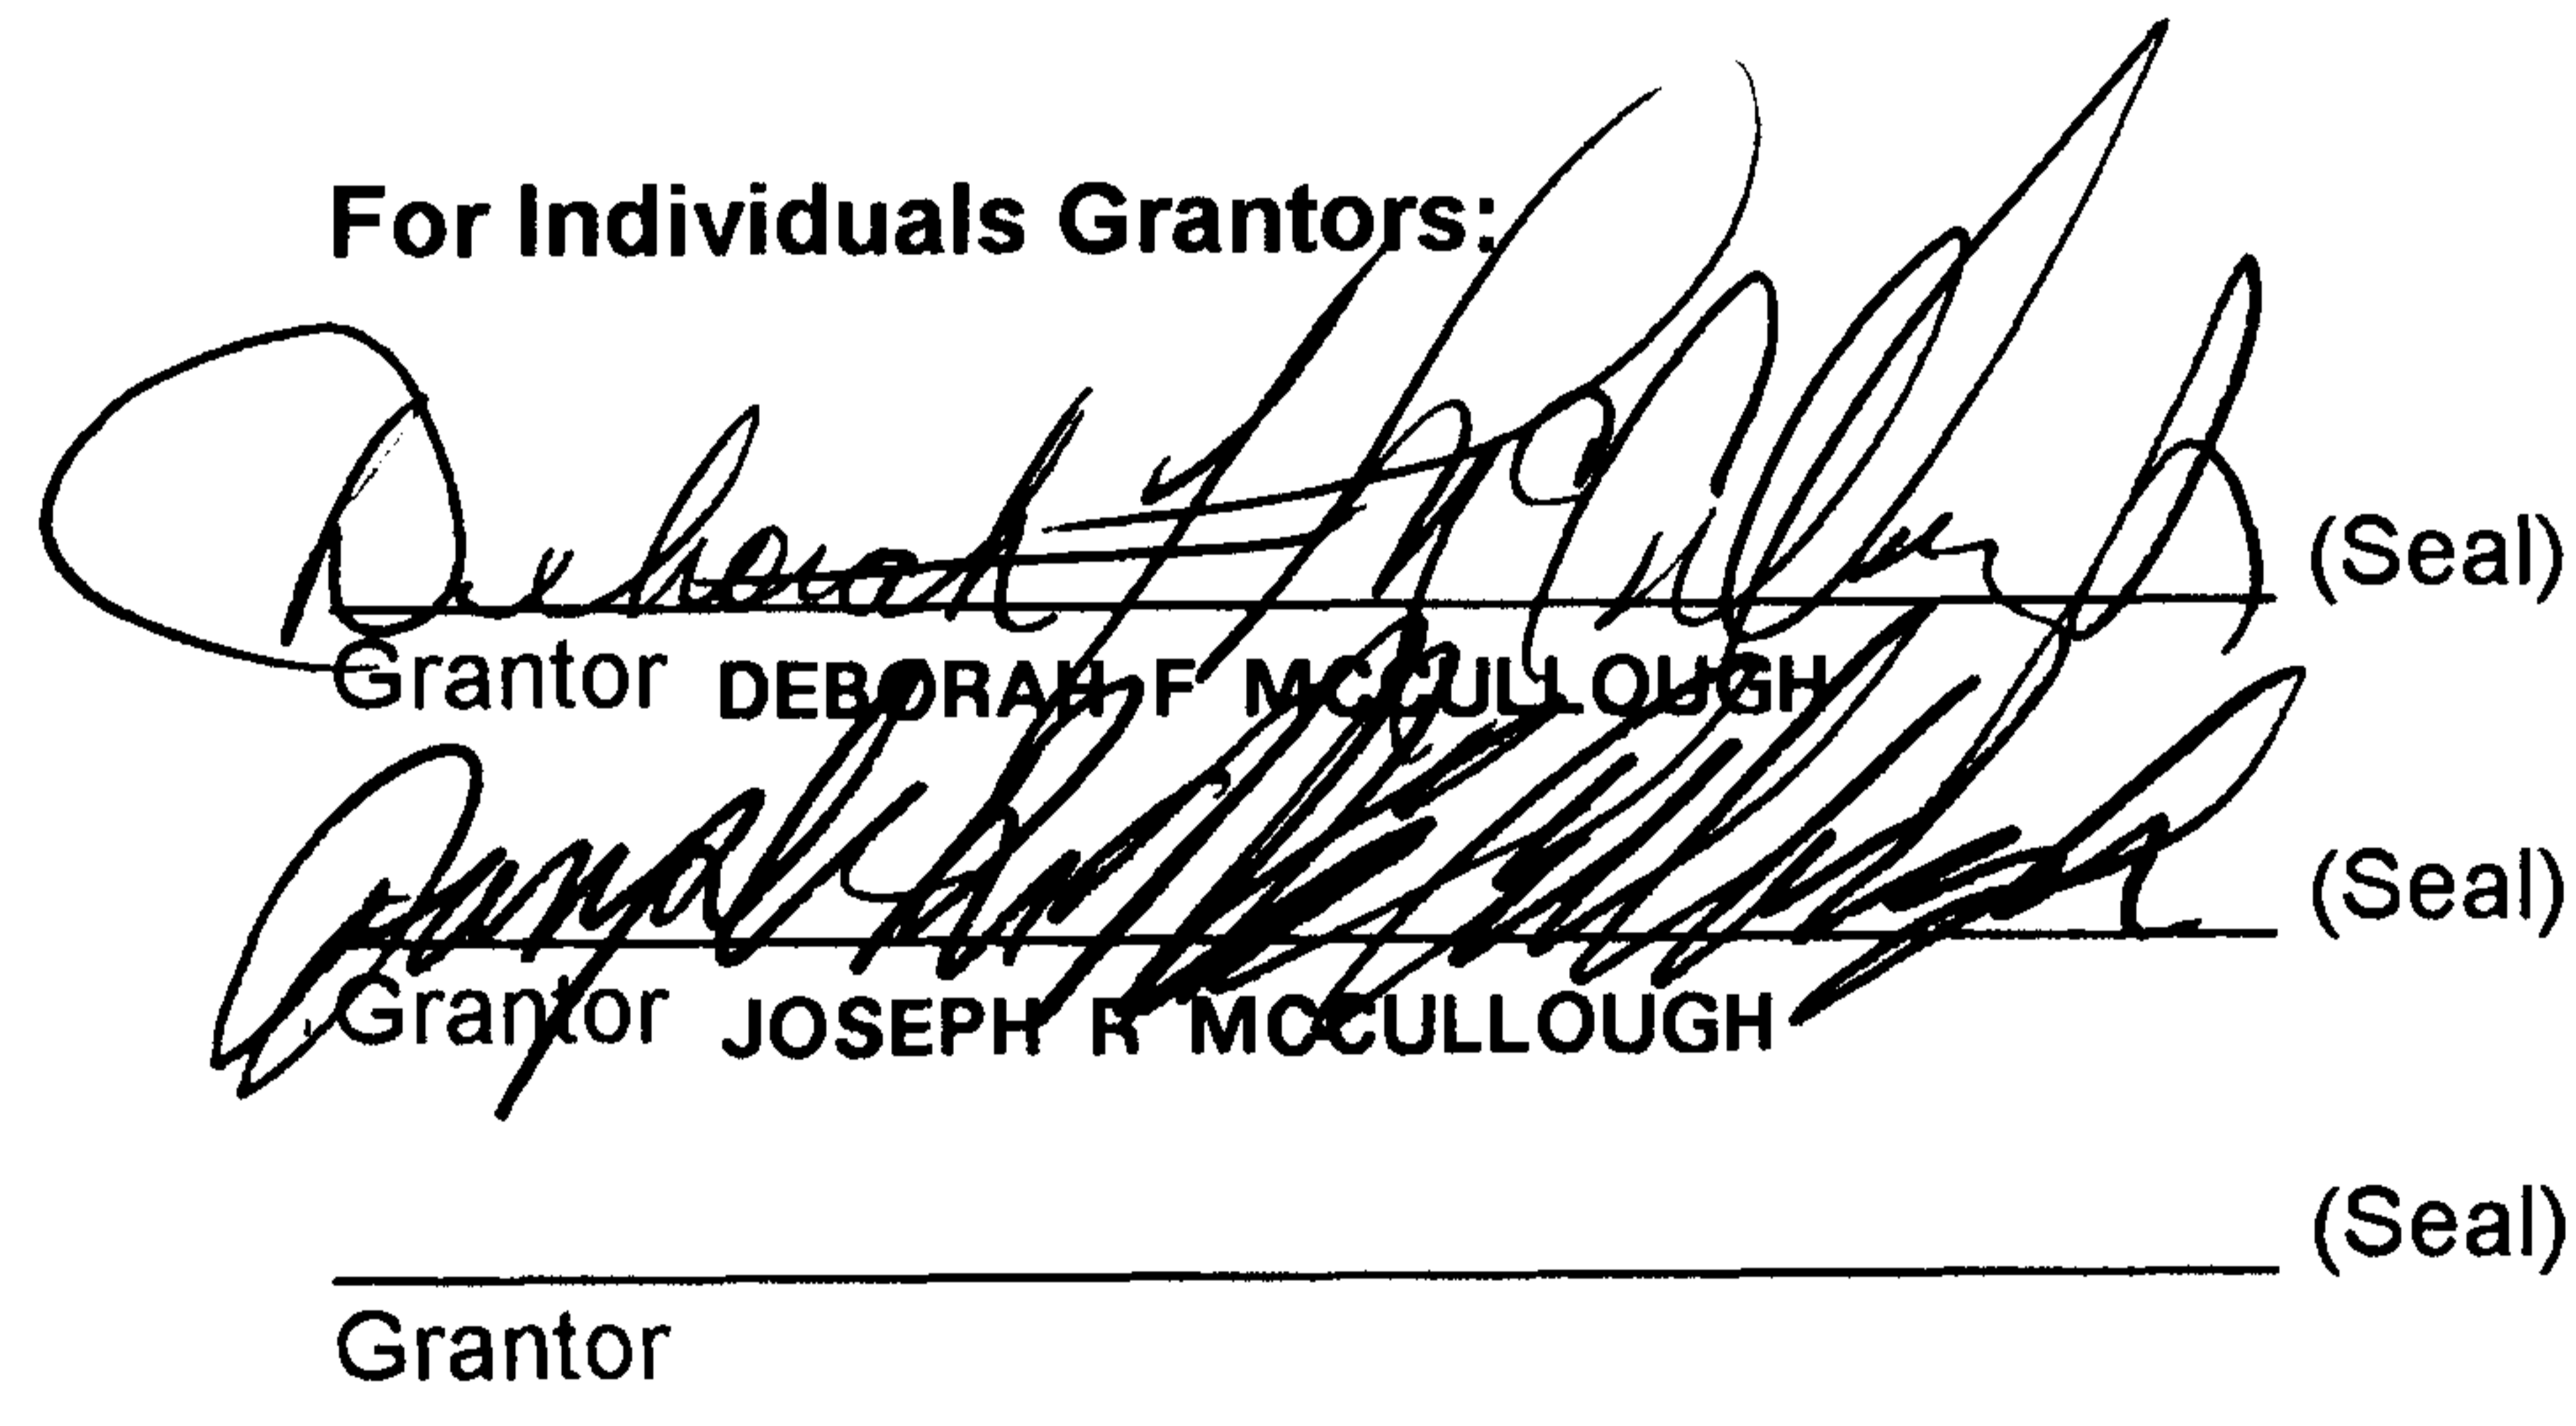 For Individuals Grantors:
Deborah F McCullough (Seal)
Grantor DEBORAH F MCCULLOUGH
Joseph R McCullough (Seal)
Grantor JOSEPH R MCCULLOUGH
(Seal)
Grantor